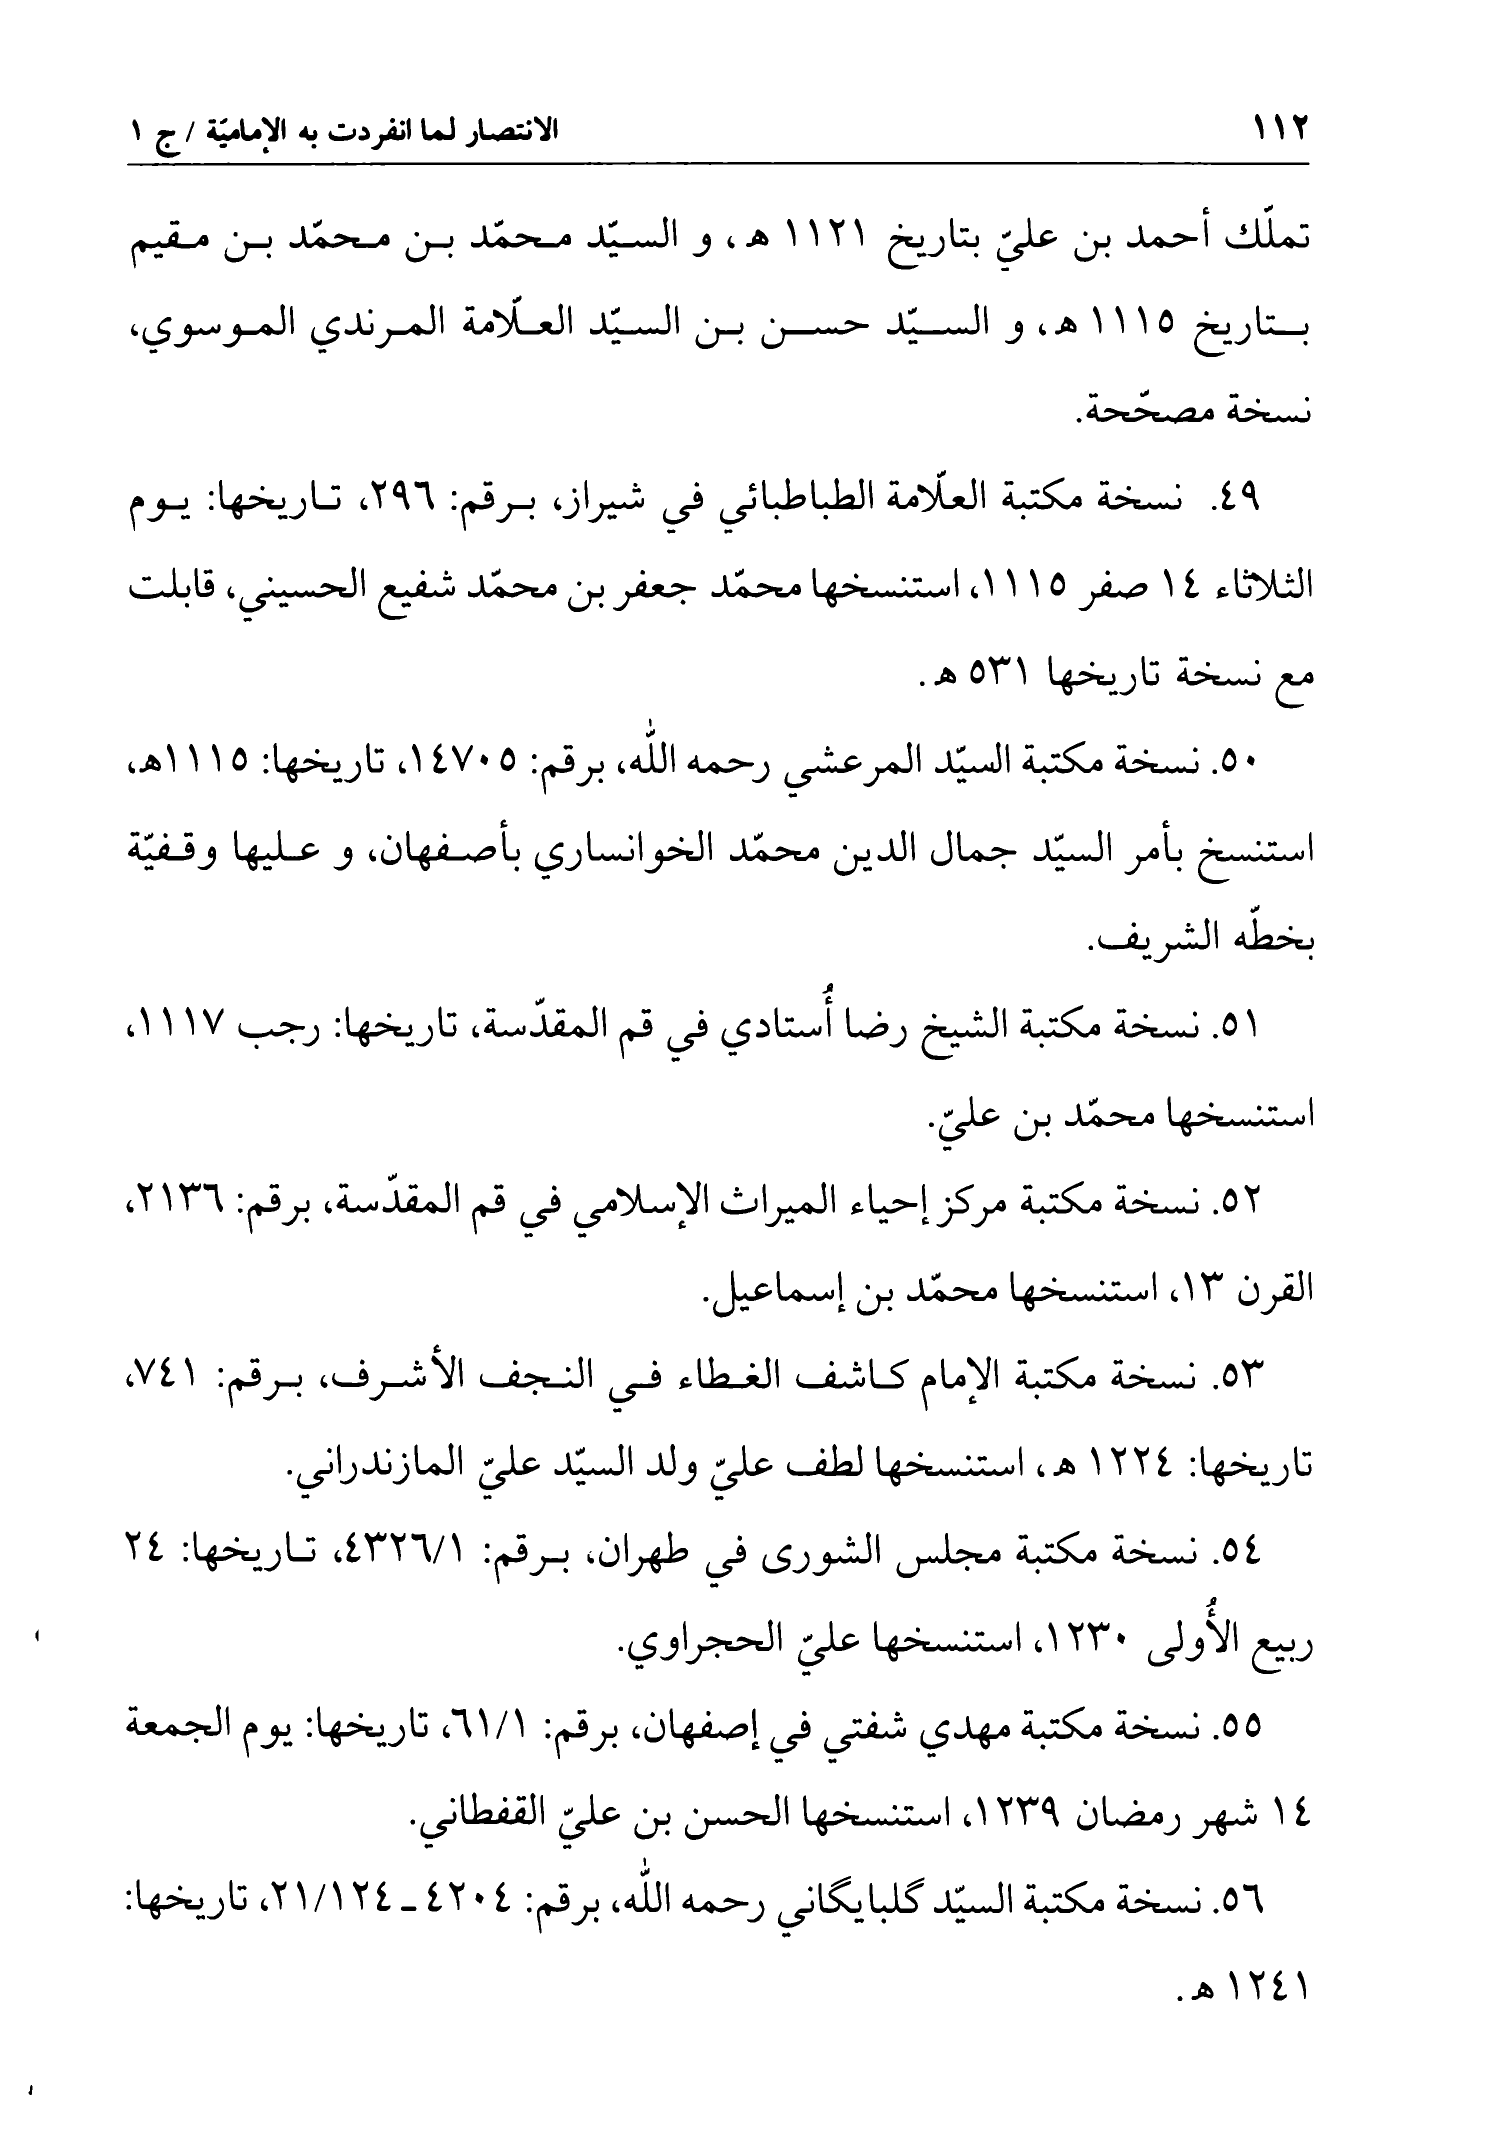 ١١٢ الانتصار لما انفردت به الإماميّة / ج ١
تملّك أحمد بن عليّ بتاريخ ١١٢١ هـ، و السيّد محمّد بن محمّد بن مقيم
بتاريخ ١١١٥ هـ، و السيّد حسن بن السيّد العلّامة المرندي الموسوي،
نسخة مصحّحة.
٤٩. نسخة مكتبة العلّامة الطباطبائي في شيراز، برقم: ٢٩٦، تاريخها: يوم
الثلاثاء ١٤ صفر ١١١٥، استنسخها محمّد جعفر بن محمّد شفيع الحسيني، قابلت
مع نسخة تاريخها ٥٣١ هـ.
٥٠. نسخة مكتبة السيّد المرعشي رحمه اللّٰه، برقم: ١٤٧٠٥، تاريخها: ١١١٥هـ،
استنسخ بأمر السيّد جمال الدين محمّد الخوانساري بأصفهان، و عليها وقفيّة
بخطّه الشريف.
٥١. نسخة مكتبة الشيخ رضا أُستادي في قم المقدّسة، تاريخها: رجب ١١١٧،
استنسخها محمّد بن عليّ.
٥٢. نسخة مكتبة مركز إحياء الميراث الإسلامي في قم المقدّسة، برقم: ٢١٣٦،
القرن ١٣، استنسخها محمّد بن إسماعيل.
٥٣. نسخة مكتبة الإمام كاشف الغطاء في النجف الأشرف، برقم: ٧٤١،
تاريخها: ١٢٢٤ هـ، استنسخها لطف عليّ ولد السيّد عليّ المازندراني.
٥٤. نسخة مكتبة مجلس الشورى في طهران، برقم: ٤٣٢٦/١، تاريخها: ٢٤
ربيع الأُولى ١٢٣٠، استنسخها عليّ الحجراوي.
٥٥. نسخة مكتبة مهدي شفتي في إصفهان، برقم: ٦١/١، تاريخها: يوم الجمعة
١٤ شهر رمضان ١٢٣٩، استنسخها الحسن بن عليّ القفطاني.
٥٦. نسخة مكتبة السيّد گلبايگاني رحمه اللّٰه، برقم: ٤٢٠٤ ـ ٢١/١٢٤، تاريخها:
١٢٤١ هـ.